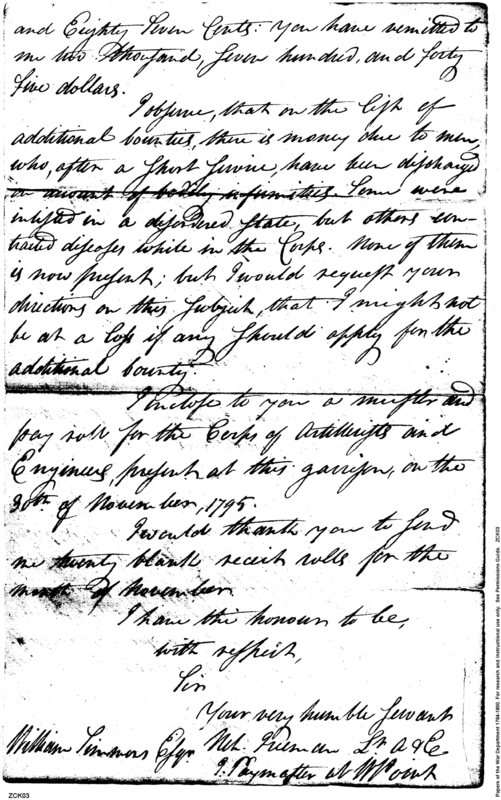 and Eighty Seven Cents: You have remitted to
me two Thousand, Seven hundred, and forty
five dollars.
I observe, that on the list of
additional bounties, there is money due to men,
who, after a short service, have been discharged
on account of bodily infirmities. Some were
inlisted in a disordered state, but others con-
tracted diseases while in the Corps. None of them
is now present; but I would request your
directions on this subject, that I might not
be at a loss if any should apply for the
additional bounty.
I enclose to you a muster and
pay roll for the Corps of Artillerists and
Engineers, present at this garrison, on the
30th. of November, 1795.
I would thank you to send
me twenty blank receit rolls for the
month of November.
I have the honour to be,
with respect,
Sir
Your very humble servant
William Simmons Esqr. Neh. Freeman Lt. A & E
P. Paymaster at W Point
ZCK03
Papers of the War Department 1784-1800. For research and instructional use only. See Permissions Guide. ZCK03